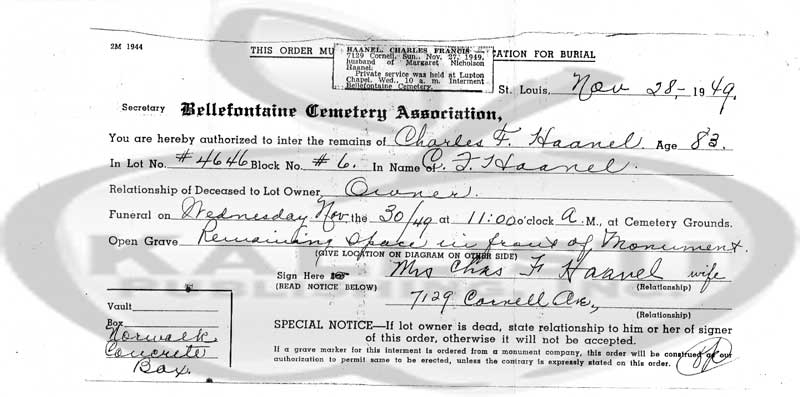 2M 1944
THIS ORDER MU
HAANEL, CHARLES FRANCIS —
7129 Cornell, Sun., Nov. 27, 1949,
husband of Margaret Nicholson
Haanel.
Private service was held at Lupton
Chapel, Wed., 10 a. m. Interment
Bellefontaine Cemetery.
CATION FOR BURIAL
St. Louis, Nov 28,- 1949.
Secretary Bellefontaine Cemetery Association,
You are hereby authorized to inter the remains of Charles F. Haanel. Age 83.
In Lot No. #4646 Block No. #6. In Name of C. F. Haanel.
Relationship of Deceased to Lot Owner, Owner.
Funeral on Wednesday Nov. the 30/49 at 11:00 o'clock A. M., at Cemetery Grounds.
Open Grave Remaining space in front of Monument.
(GIVE LOCATION ON DIAGRAM ON OTHER SIDE)
Sign Here Mrs Chas F Haanel wife
(READ NOTICE BELOW) (Relationship)
7129 Cornell Ave.,
(Relationship)
Vault
Box
Norwalk
Concrete
Box.
SPECIAL NOTICE—If lot owner is dead, state relationship to him or her of signer
of this order, otherwise it will not be accepted.
If a grave marker for this interment is ordered from a monument company, this order will be construed as our
authorization to permit same to be erected, unless the contrary is expressly stated on this order.
PUBLISHING, INC.